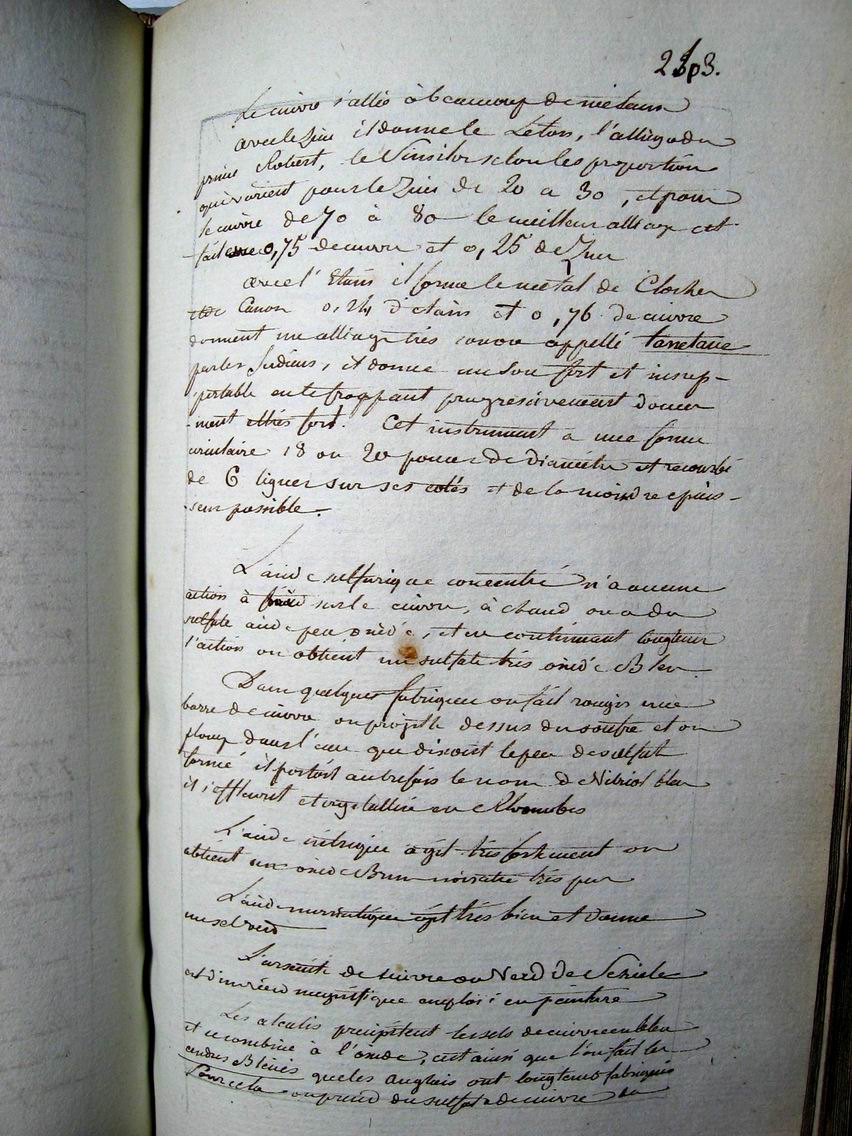 Le cuivre s'allie à beaucoup de métaux
avec le Zinc il donne le Leton, l'alliage du
prince Robert, le Similor selon les proportions
qui varient pour le Zinc de 20 a 30, et pour
le cuivre de 70 à 80 le meilleur alliage est
fait 0,75 de cuivre et 0,25 de Zinc
avec l'Etain il forme le métal de Cloches
et de Canon 0,24 d'étain et 0,76 de cuivre
donnent un alliage très sonore appellé
par les Indiens, il donne un son fort et insup-
-portable en le frappant progressivement douce-
-ment et très fort. Cet instrument a une forme
circulaire 18 ou 20 pouces de Diametre et recourbé
de 6 lignes sur ses cotés et de la moindre epais-
-seur possible.
L'acide sulfurique concentré n'a aucune
action à froid sur le cuivre, à chaud on a du
sulfate acide peu oxidé, et en continuant
l'action on obtient un sulfate très oxidé Bleu
Dans quelques fabriques on fait rougir une
barre de cuivre on projette dessus du soufre et on
plonge dans l'eau qui dissout le peu de sulfate
formé il portoit autrefois le nom de Vitriol bleu
il s'effleurit et crystallise en Rhombes
L'acide nitrique agit très fortement on
obtient un oxide Brun noiratre très pur
L'acide muriatique agit très bien et donne
un sel verd
L'arsenite de cuivre ou Verd de Scheele
est d'un verd magnifique emploié en peinture
Les alcalis précipitent les sels de cuivre en bleu
et se combine à l'oxide, c'est ainsi que l'on fait les
cendres Bleues que les Anglais ont longtems fabriquées
Pour cela on prend du sulfate de cuivre du